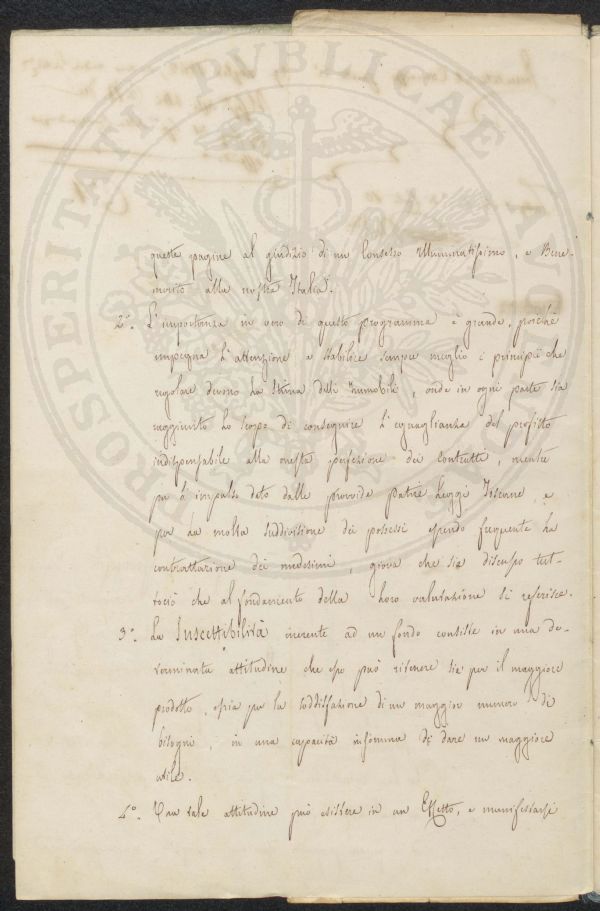 PROSPERITATI PUBLICAE AVGENDAE
queste pagine al giudizio di un Consesso Illuminatissimo, e Bene-
merito alla nostra Italia.
2.° L'importanza in vero di questo programma è grande, poichè
impegna l'attenzione a stabilire sempre meglio i principii che
regolare devono la Stima delli Immobili, onde in ogni parte sia
raggiunto lo scopo di conseguire l'eguaglianza del profitto
indispensabile alla onesta perfezione dei Contratti, mentre
per l'impulso dato dalle provvide patrie Leggi Toscane, e
per la molta suddivisione dei possessi essendo frequente la
contrattazione dei medesimi, giova che sia discusso tut-
tociò che al fondamento della loro valutazione si referisce.
3.° La Suscettibilità inerente ad un fondo consiste in una de-
terminata attitudine che esso può ritenere sia per il maggiore
prodotto, ossia per la soddisfazione di un maggior numero di
bisogni, in una capacità insomma di dare un maggiore
utile.
4.° Una tale attitudine può esistere in un Effetto, e manifestarsi